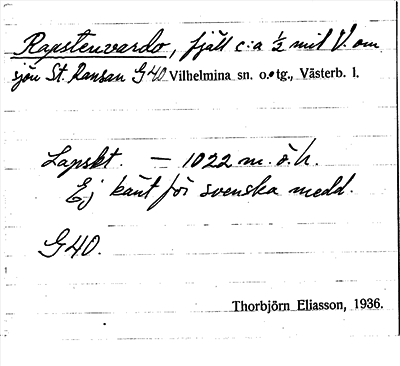 Rapstenvardo, fjäll c:a ½ mil V. om
sjön St. Ransan G40. Vilhelmina sn. o. tg., Västerb. l.
Lapskt. — 1022 m. ö. h.
Ej känt för svenska medd.
G40.
Thorbjörn Eliasson, 1936.